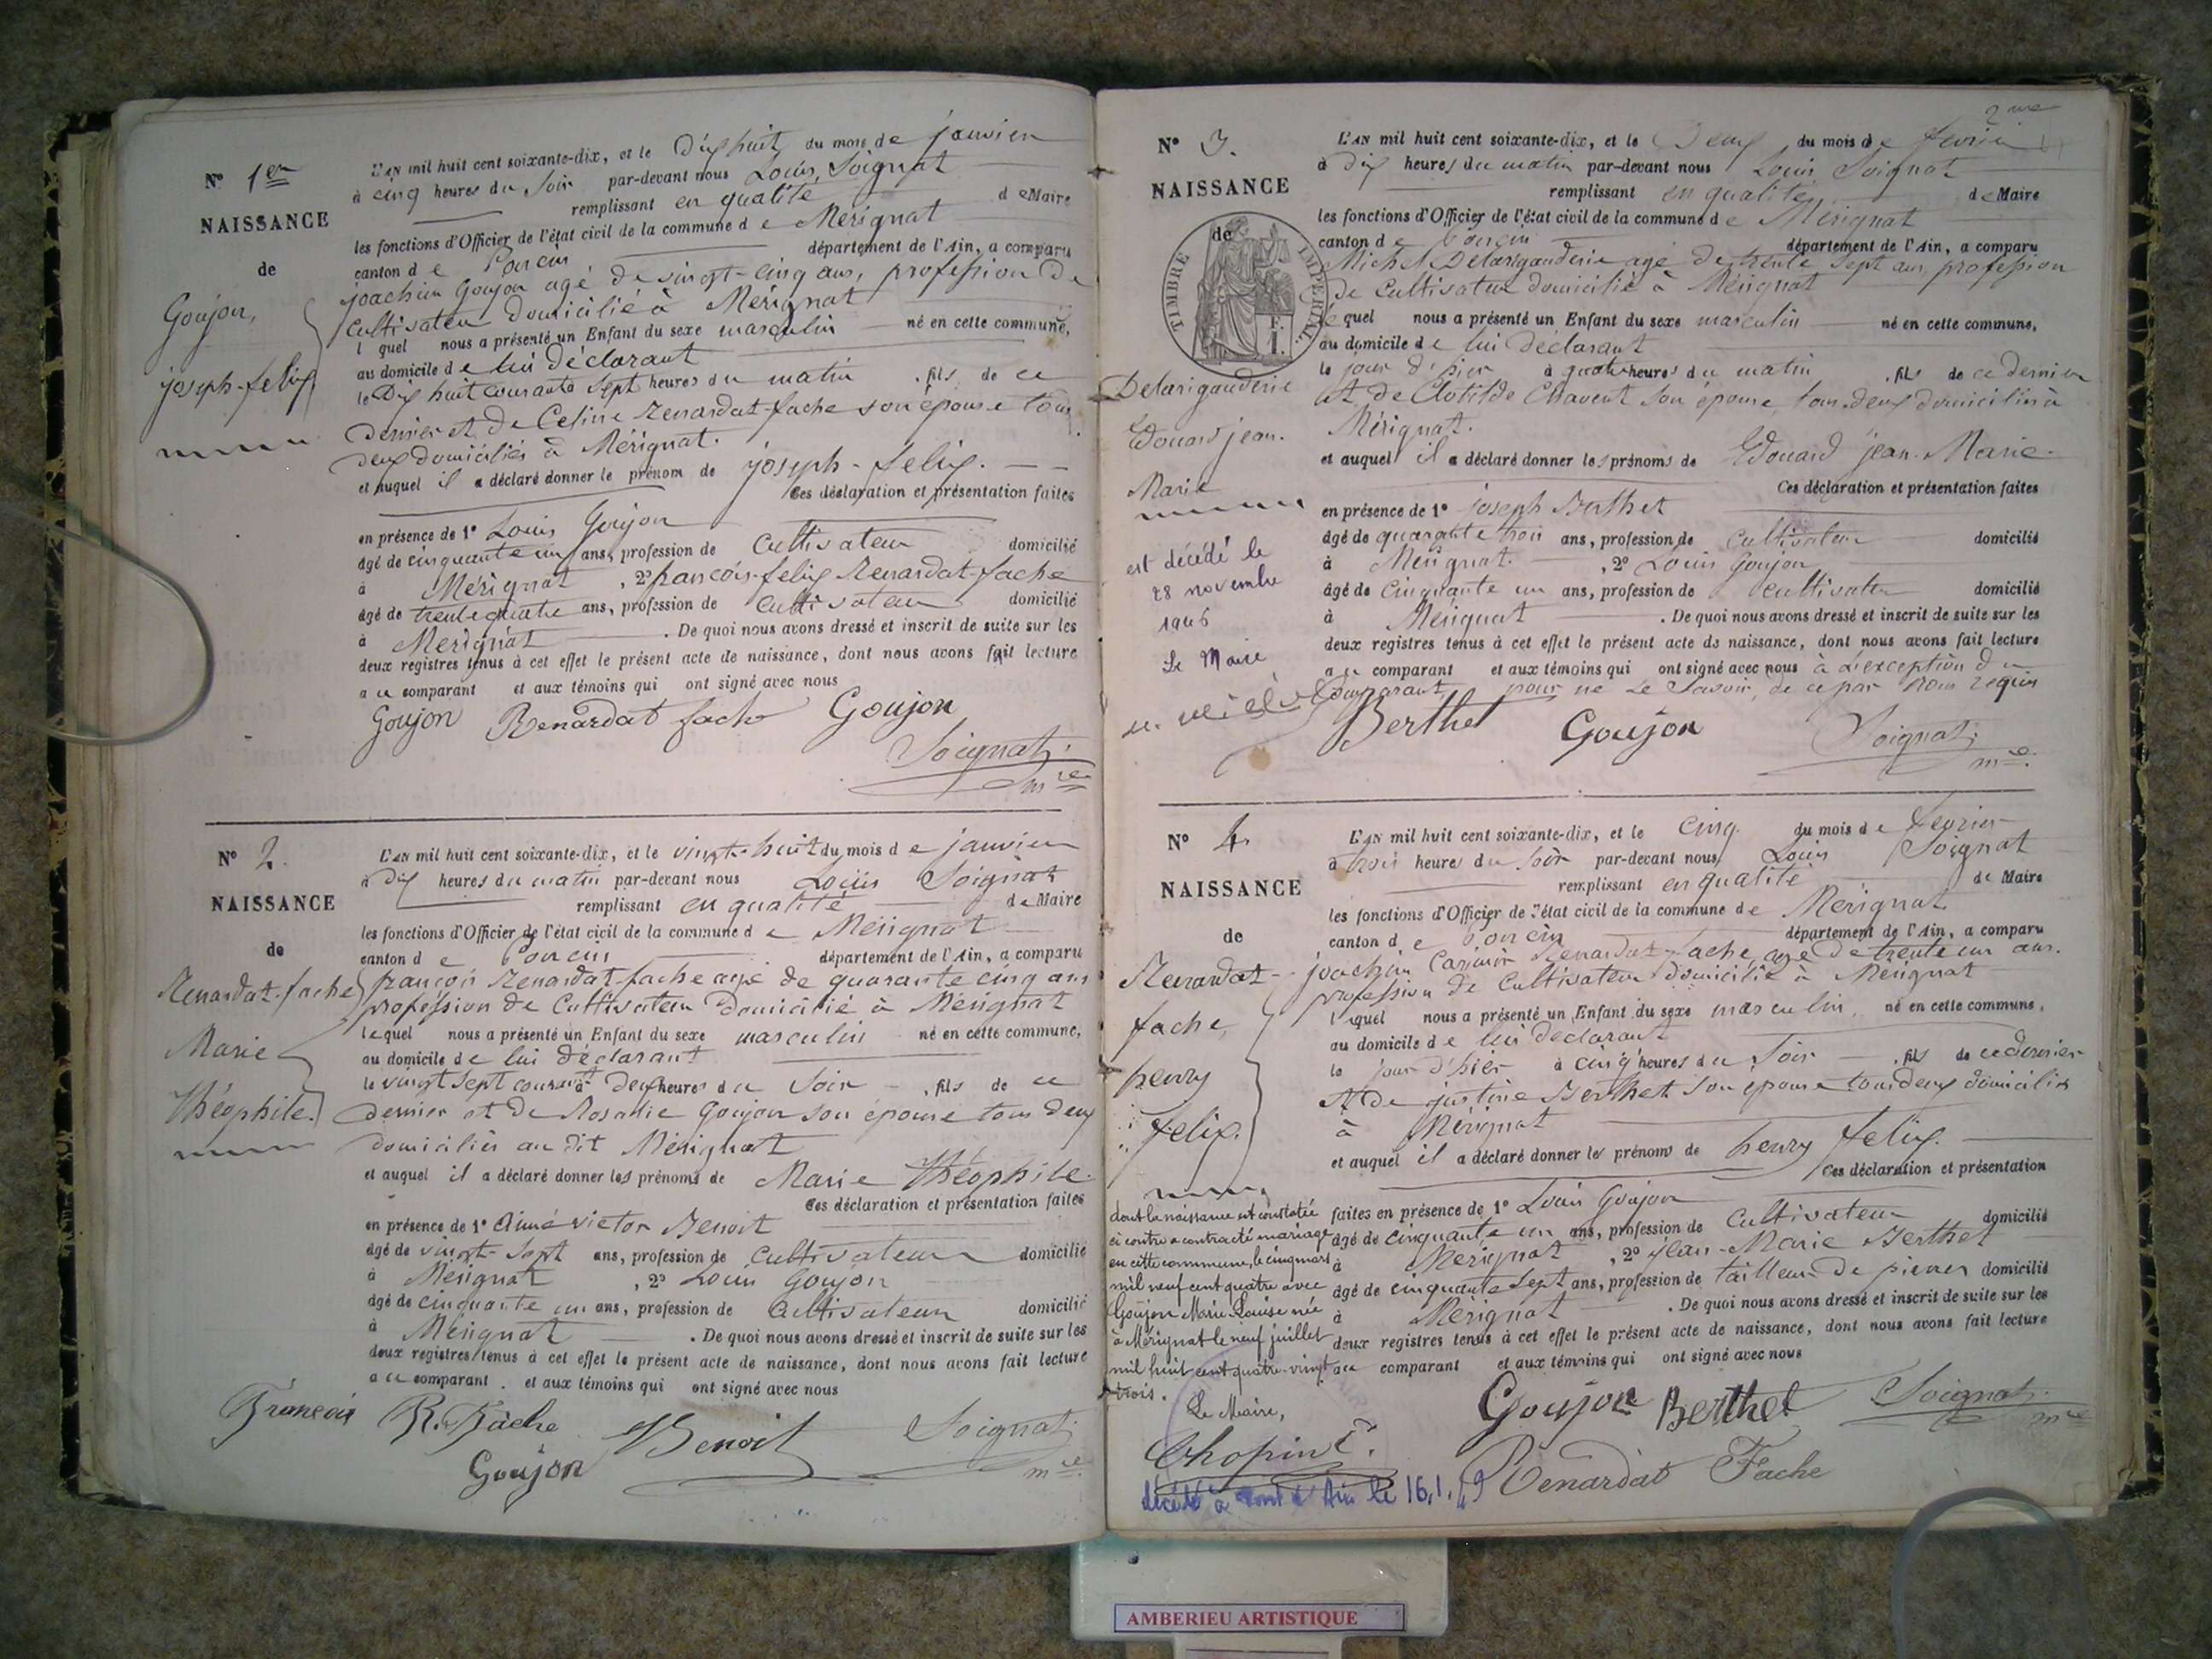 N° 1er
NAISSANCE
de
Goujon,
joseph-felix
L'AN mil huit cent soixante-dix, et le Dix huit du mois de janvier
à cinq heures du Soir par-devant nous Louis Soignat
remplissant en qualité de Maire
les fonctions d'Officier de l'état civil de la commune de Mérignat
canton de Poncin département de l'Ain, a comparu
joachim Goujon agé de vingt-cinq ans, profession De
Cultivateur domicilié à Mérignat
l quel nous a présenté un Enfant du sexe masculin né en cette commune,
au domicile de lui Déclarant
le Dix huit courant à Sept heures du matin , fils de ce
Dernier et de Celine Renardat-fache son épouse tous
deux domiciliés à Mérignat.
et auquel il a déclaré donner le prénom de joseph-felix.
Ces déclaration et présentation faites
en présence de 1° Louis Goujon
âgé de cinquante un ans, profession de Cultivateur domicilié
à Mérignat , 2° françois-felix Renardat-fache
âgé de trente quatre ans, profession de Cultivateur domicilié
à Mérignat . De quoi nous avons dressé et inscrit de suite sur les
deux registres tenus à cet effet le présent acte de naissance, dont nous avons fait lecture
au comparant et aux témoins qui ont signé avec nous
Goujon Renardat fache Goujon
Soignat
mre
N° 2.
NAISSANCE
de
Renardat-fache
Marie
Théophile.
L'AN mil huit cent soixante-dix, et le vingt-huit du mois de janvier
à Dix heures du matin par-devant nous Louis Soignat
remplissant en qualité de Maire
les fonctions d'Officier de l'état civil de la commune de Mérignat
canton de Poncin département de l'Ain, a comparu
françois Renardat-fache agé de quarante cinq ans
profession de Cultivateur Domicilié à Mérignat
lequel nous a présenté un Enfant du sexe masculin né en cette commune,
au domicile de lui déclarant
le vingt Sept courant à Deux heures du Soir , fils de ce
dernier et de Rosalie Goujon son épouse tous deux
domiciliés au dit Mérignat
et auquel il a déclaré donner les prénoms de Marie Théophile.
Ces déclaration et présentation faites
en présence de 1° Aimé victor Benoit
âgé de vingt-Sept ans, profession de Cultivateur domicilié
à Mérignat , 2° Louis Goujon
âgé de cinquante un ans, profession de Cultivateur domicilié
à Mérignat . De quoi nous avons dressé et inscrit de suite sur les
deux registres tenus à cet effet le présent acte de naissance, dont nous avons fait lecture
au comparant . et aux témoins qui ont signé avec nous
François R. Fâche Benoit Soignat
Goujon mre
2me
N° 3.
NAISSANCE
de
TIMBRE IMPERIAL
F.
1.
Delarigauderie
Edouard jean.
Marie
est décédé le
28 novembre
1946
Le Maire
L'AN mil huit cent soixante-dix, et le Deux du mois de fevrier
à Dix heures du matin par-devant nous Louis Soignat
remplissant en qualité de Maire
les fonctions d'Officier de l'état civil de la commune de Mérignat
canton de Poncin département de l'Ain, a comparu
Michel Delarigauderie agé de trente sept ans, profession
De Cultivateur domicilié à Mérignat
lequel nous a présenté un Enfant du sexe masculin né en cette commune,
au domicile de lui Déclarant
le jour d'hier à quatre heures du matin , fils de ce dernier
et de Clotilde Chavent son épouse, tous deux domiciliés à
Mérignat.
et auquel il a déclaré donner les prénoms de Edouard jean-Marie.
Ces déclaration et présentation faites
en présence de 1° joseph Berthet
âgé de quarante trois ans, profession de Cultivateur domicilié
à Mérignat. , 2° Louis Goujon
âgé de cinquante un ans, profession de Cultivateur domicilié
à Mérignat . De quoi nous avons dressé et inscrit de suite sur les
deux registres tenus à cet effet le présent acte de naissance, dont nous avons fait lecture
au comparant et aux témoins qui ont signé avec nous à l'exception du
Comparant pour ne Le Savoir, de ce par nous requis
Berthet Goujon Soignat
mre.
N° 4.
NAISSANCE
de
Renardat-
fache,
henry
felix.
dont la naissance est constatée
ci contre a contracté mariage
en cette commune, le cinq mars
mil neuf cent quatre avec
Goujon Marie Louise née
à Mérignat le neuf juillet
mil huit cent quatre-vingt
trois.
Le Maire,
Chopin
décédé à Pont d'Ain le 16.1.49
L'AN mil huit cent soixante-dix, et le Cinq. du mois de fevrier
à trois heures du Soir par-devant nous Louis Soignat
remplissant en qualité de Maire
les fonctions d'Officier de l'état civil de la commune de Mérignat
canton de Poncin département de l'Ain, a comparu
joachim Casimir Renardat-fache, agé de trente un ans.
profession de Cultivateur domicilié à Mérignat
lequel nous a présenté un Enfant du sexe masculin, né en cette commune,
au domicile de lui Déclarant
le jour d'hier à cinq heures du Soir , fils de ce dernier
et de justine Berthet son épouse tous deux domiciliés
à Mérignat
et auquel il a déclaré donner les prénoms de henry felix.
Ces déclaration et présentation
faites en présence de 1° Louis Goujon
âgé de cinquante un ans, profession de Cultivateur domicilié
à Mérignat , 2° jean-Marie Berthet
âgé de cinquante sept ans, profession de tailleur de pierres domicilié
à Mérignat . De quoi nous avons dressé et inscrit de suite sur les
deux registres tenus à cet effet le présent acte de naissance, dont nous avons fait lecture
au comparant et aux témoins qui ont signé avec nous
Goujon Berthet Soignat
mre
Renardat Fache
AMBERIEU ARTISTIQUE